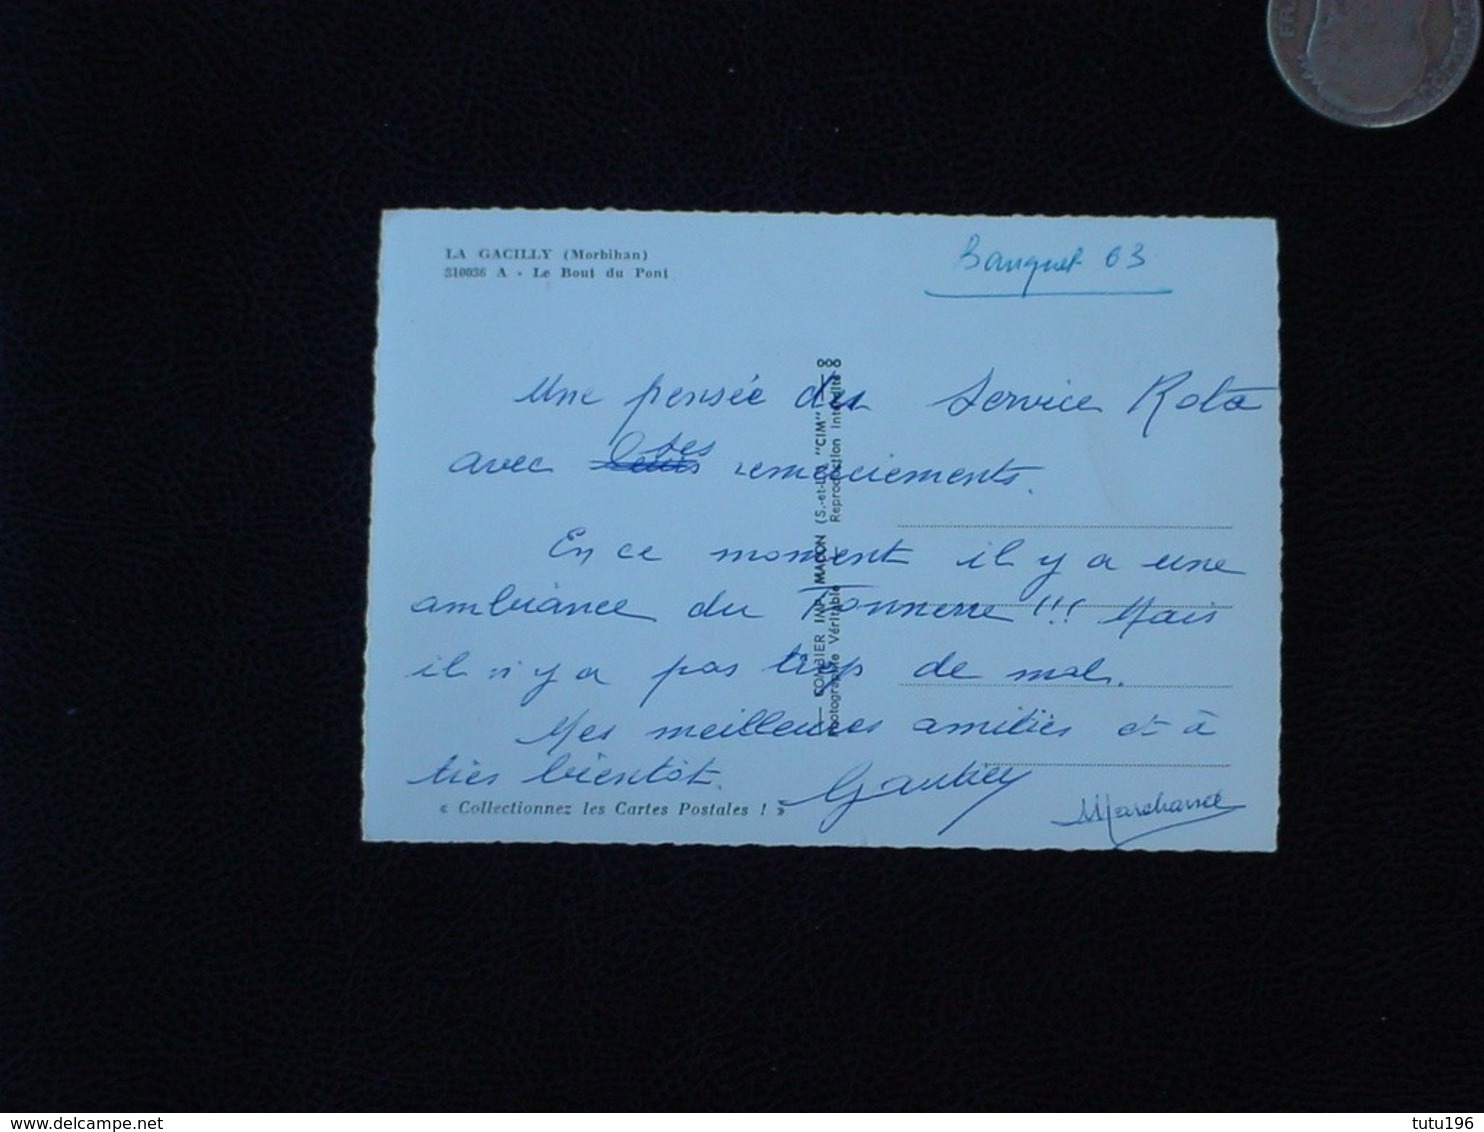 LA GACILLY (Morbihan)
310036 A - Le Bout du Pont
Banquet 63
Une pensée du Service Roto
avec ses remerciements.
En ce moment il y a une
ambiance du Tonnerre !!! Mais
il n'y a pas trop de mal.
Mes meilleures amitiés et à
très bientôt.
Marchand
« Collectionnez les Cartes Postales ! »
COMBIER IMP. MACON (S.-et-L.) "CIM"
Photographie Véritable - Reproduction Interdite
tutu196